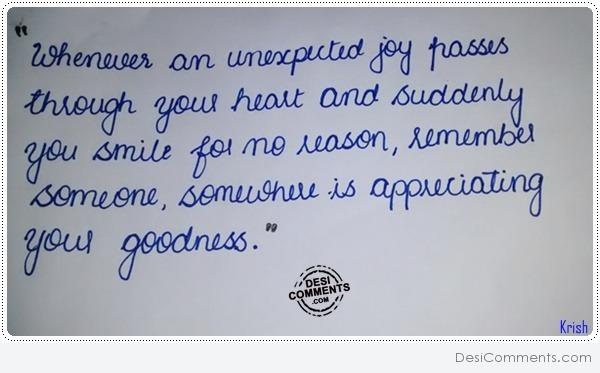 "Whenever an unexpected joy passes
through your heart and suddenly
you smile for no reason, remember
someone, somewhere is appreciating
your goodness."
DESI
COMMENTS
.COM
Krish
DesiComments.com